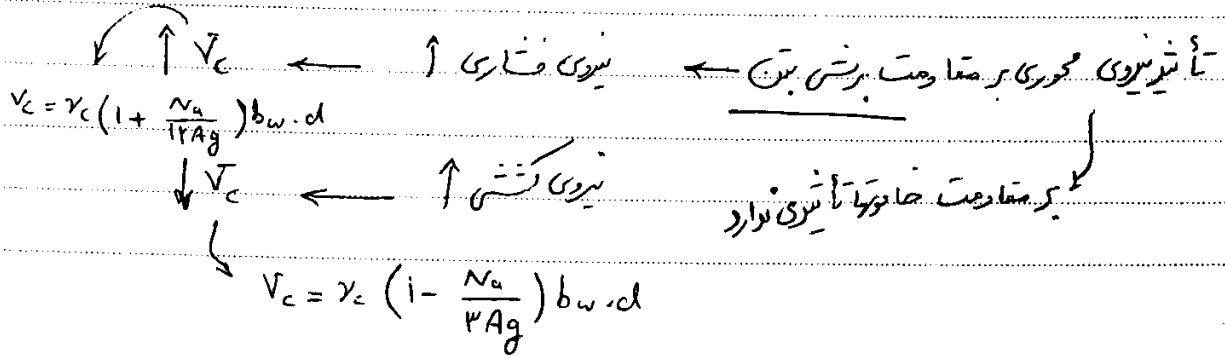 تأثیر نیروی محوری بر مقاومت برشی بتن ← نیروی فشاری ↑ ← V_c ↑
V_c = ν_c (1 + N_u / ۱۲A_g) b_w . d
بر مقاومت خاموتها تأثیری ندارد
نیروی کششی ↑ ← V_c ↓
V_c = ν_c (1 - N_u / ۳A_g) b_w . d